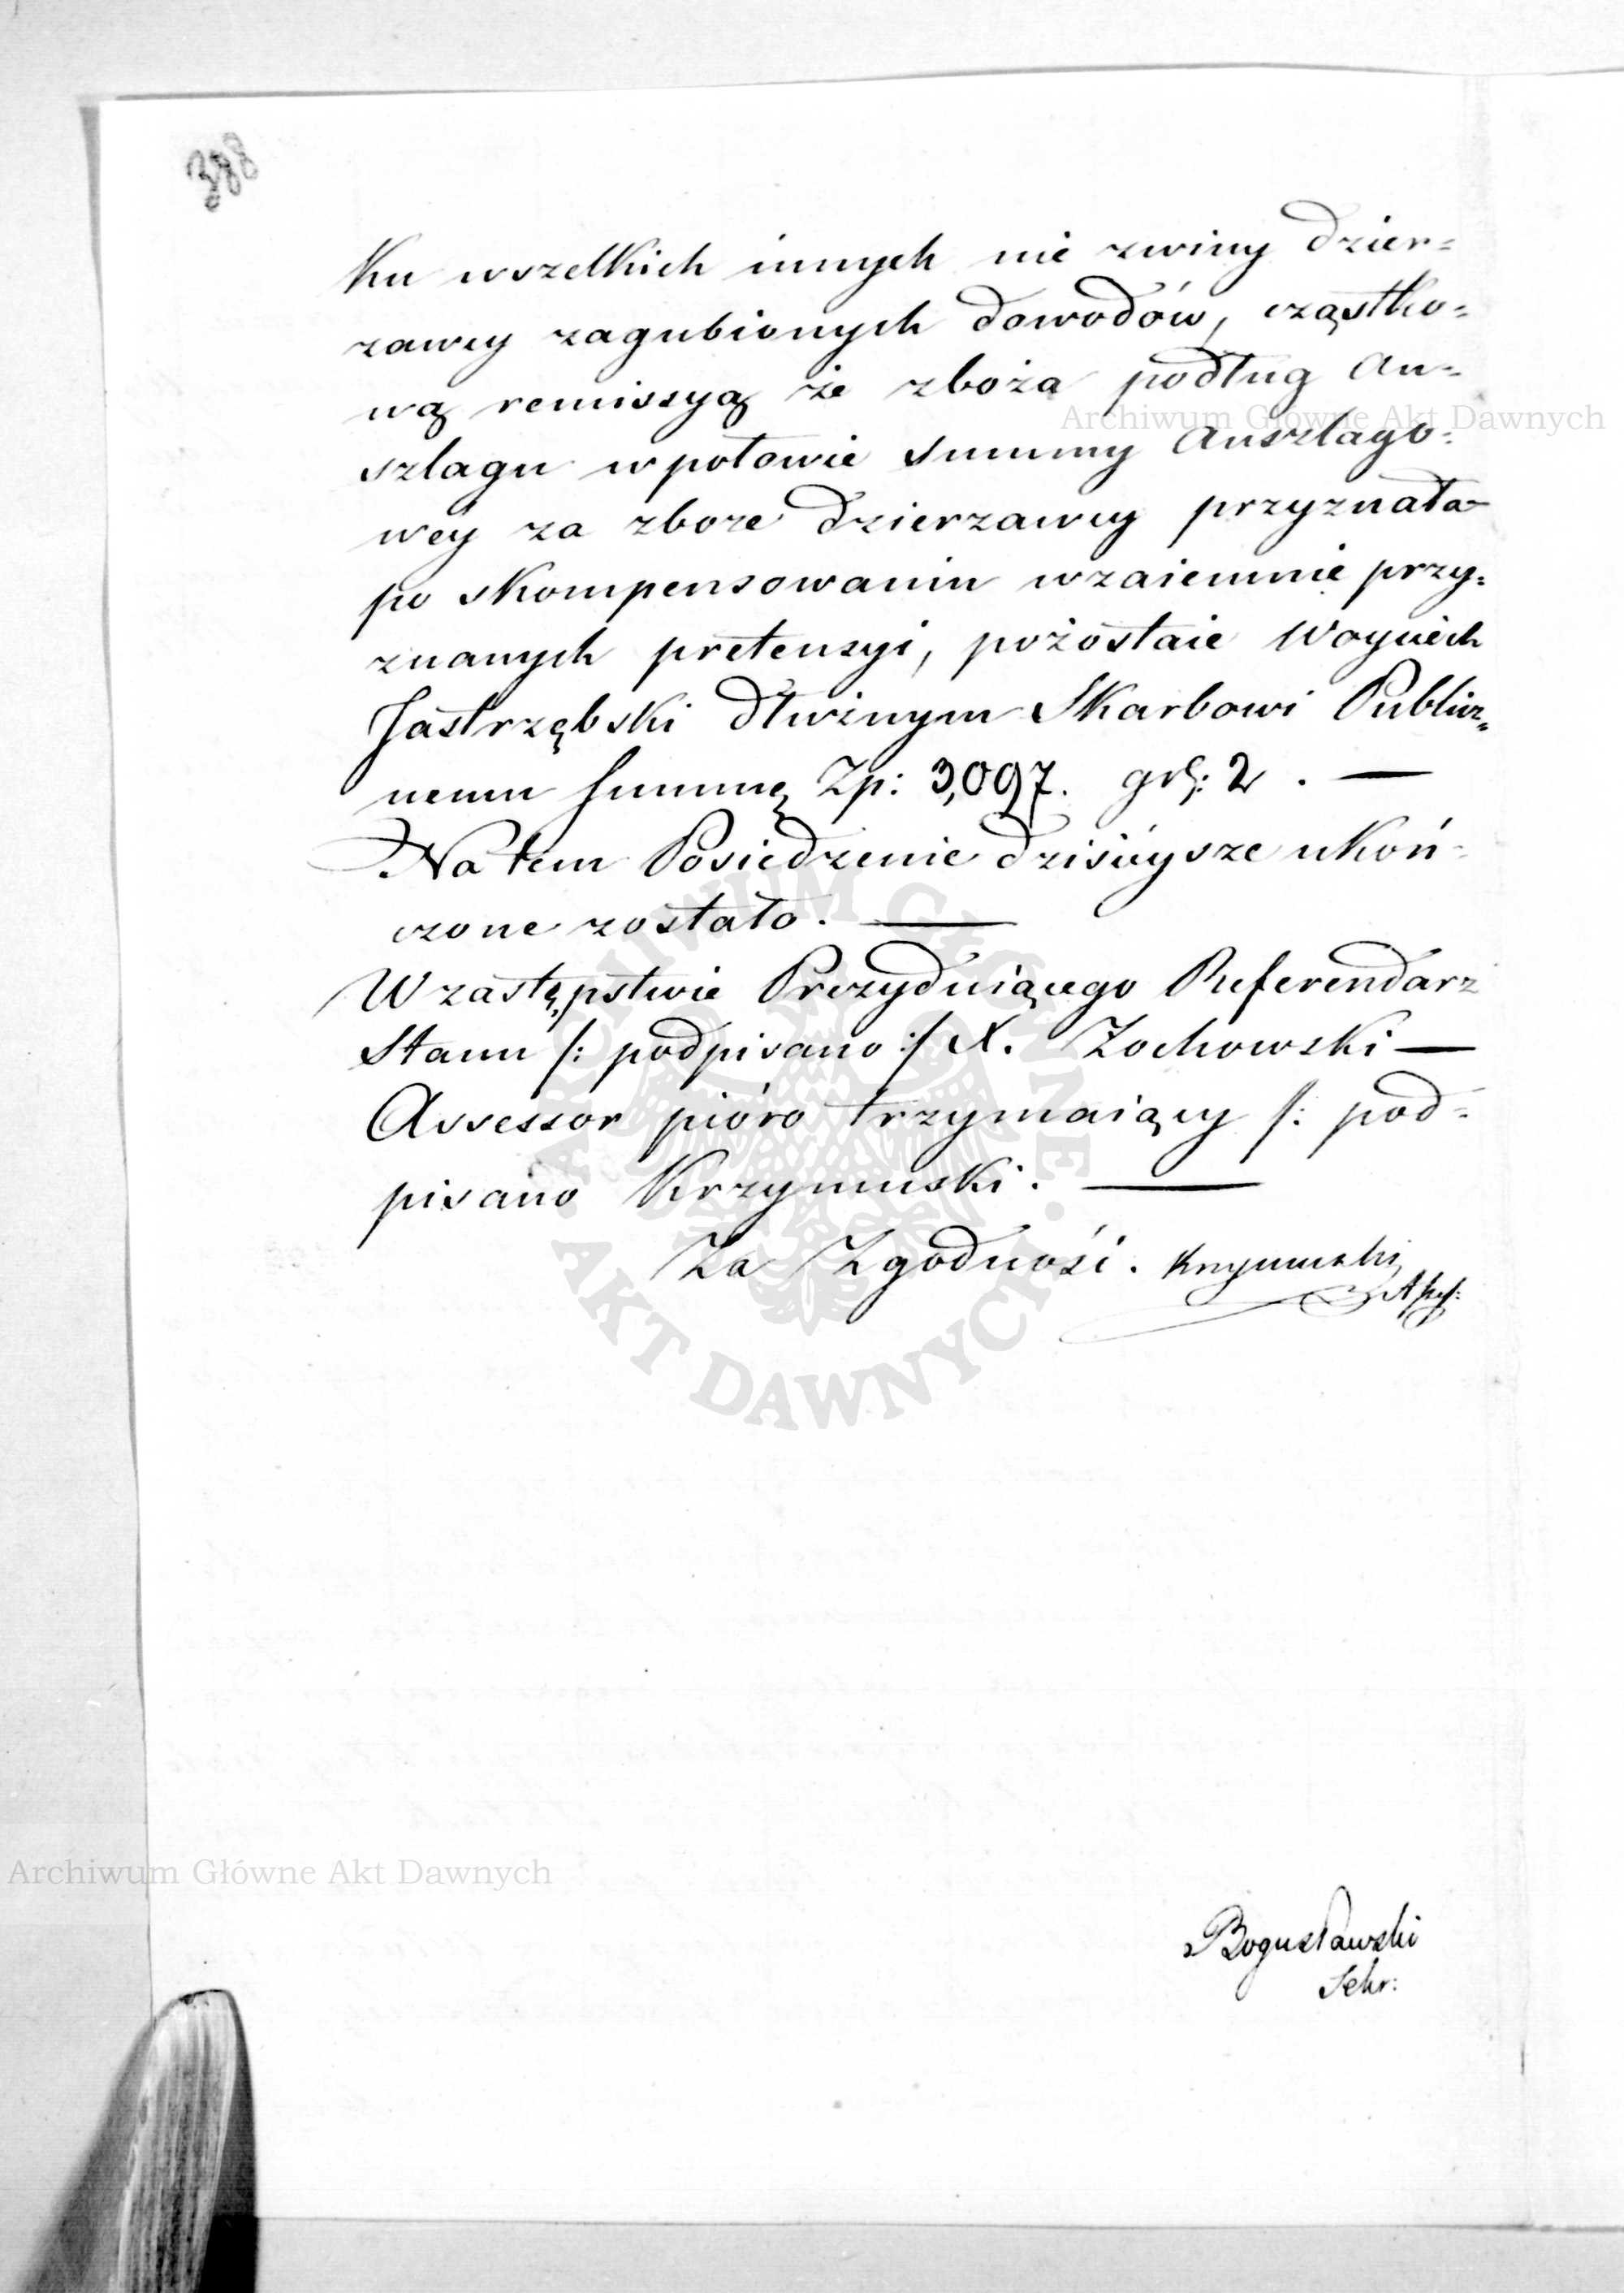 388
ku wszelkich innych nie zwiny dzier=
zawcy zagubionych dowodów, cząstko=
wą remissyą że zboża podług An=
szlagu w połowie summy Anszlago=
wéy za zboże dzierzawcy przyznała
po skompensowaniu wzaiemnie przy=
znanych pretensyi, pozostaie Woyciech
Jastrzębski dłużnym Skarbowi Publicz=
nemu Summę Zp: 3,097. gr: 2. —
Na tem Posiedzenie dzisiéysze ukoń=
czone zostało. —
W zastępstwie Prezyduiącego Referendarz
Stanu /: podpisano :/ X. Zochowski —
Assessor pióro trzymaiący /: pod=
pisano Krzymuski. —
Za Zgodność. Krzymuski
Asses:
Bogusławski
Sekr:
Archiwum Główne Akt Dawnych
Archiwum Główne Akt Dawnych
ARCHIWUM GŁÓWNE · AKT DAWNYCH ·